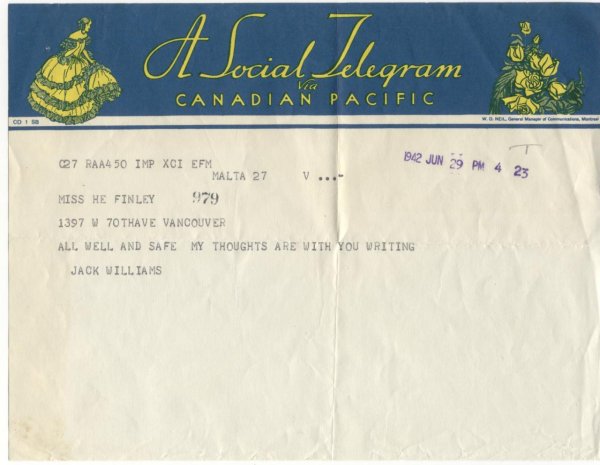 A Social Telegram
Via
CANADIAN PACIFIC
CD 1 SB
W. D. NEIL, General Manager of Communications, Montreal
T
C27 RAA450 IMP XCI EFM
1942 JUN 29 PM 4 23
MALTA 27 V ...-
MISS HE FINLEY 979
1397 W 70THAVE VANCOUVER
ALL WELL AND SAFE MY THOUGHTS ARE WITH YOU WRITING
JACK WILLIAMS